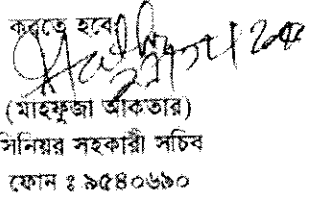 করতে হবে
(মাহফুজা আকতার)
সিনিয়র সহকারী সচিব
ফোন ঃ ৯৫৪০৬৯০